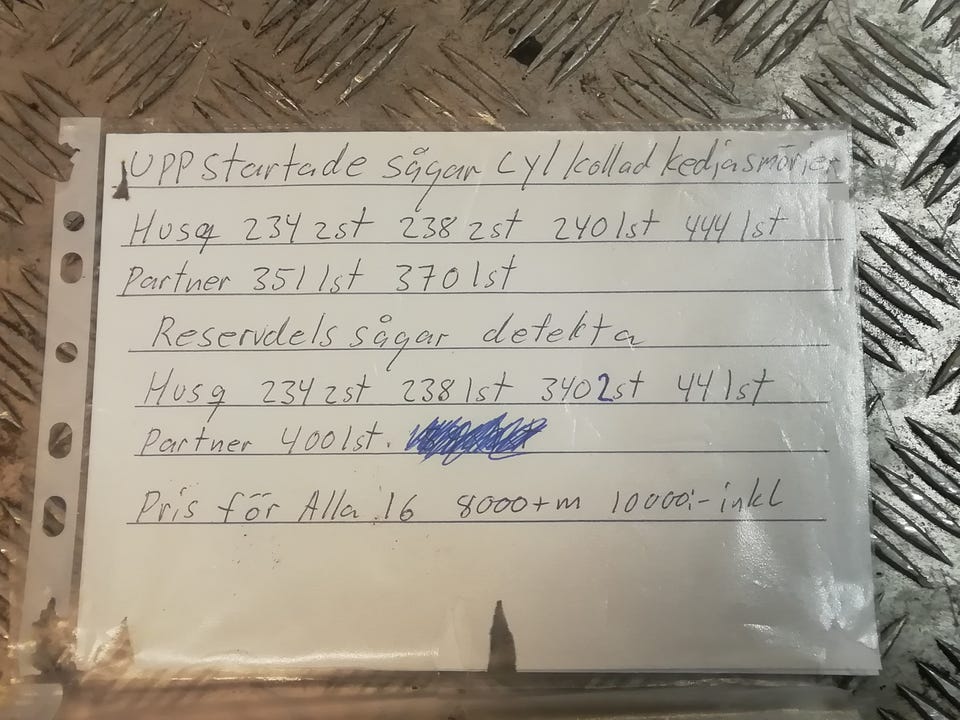 UPPstartade sågar Cyl kollad kedjasmörjer
Husq 234 2st 238 2st 240 1st 444 1st
Partner 351 1st 370 1st
Reservdels sågar defekta
Husq 234 2st 238 1st 340 2st 44 1st
Partner 400 1st.
Pris för Alla 16 8000+m 10000:- inkl